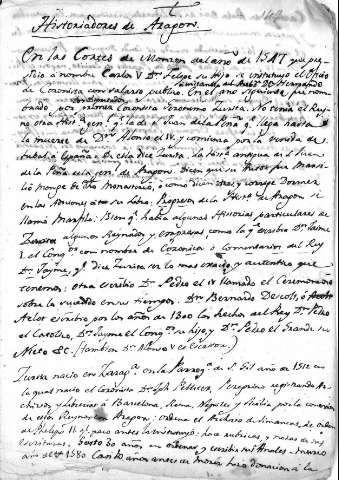 Historiadores de Aragon.
En las Cortes de Monzon del año de 1547 que pre-
sidio a nombre Carlos V Dn. Felipe su Hijo se instituyo el Oficio
de Coronista con salario publico. En el año siguiente fue nom-
brado por primer Coronista Geronimo Zurita. No tenia el Rey-
no otra Hista. gen. qe. la de Sn. Juan de la Peña qe. llega hasta
la muerte de Dn. Alonso el IV. y comienza por la venida de
Tubal a España. De esta dice Zurita. La Hista. antigua de S. Juan
de la Peña es la gen. de Aragon. Dicen que su Autor fue Marsi-
lio monge de dho Monasterio, o como dicen otros, y corrige Dormer
en las
llamò Marfilo. Bien qe. habia algunas Historias particulares de
algunos Reynados y empresas, como la qe. escribio Dn. Jaime
I. el Congr. con nombre de Coronica o Comentarios del Rey
Dn. Jayme, qe. dice Zurita ser lo mas exacto y autentico que
tenemos; otra escribio Dn. Pedro el IV llamado el Ceremonioso
sobre lo sucedido en su tiempo. Dn. Bernardo Desclot, ò
Aclot escribio por los años de 1300 los hechos del Rey Dn. Pedro
el Catolico, Dn. Jayme el Congr. su hijo, y Dn. Pedro el Grande su
Nieto &c. (tambien Dn. Alonso
Zurita nacio en Zaragª. en la Parroqª. de S. Gil año de 1512 en
la qual nacio el Coronista Dn. Jph Pellicer. Peregrino registrando Ar-
chivos y librerias de Barcelona, Roma, Napoles y Sicilia por la conexion
de estos Reynos con Aragon: ordena el Archivo de Simancas, de orden
de Phelipe II. qe. poco antes lo instituyò: hace rubricas y notas de sus
escrituras. Gasto 30 años en ordenar y escribir sus Anales. Murio
año de 1580. Casi 10 años antes de morir hizo donacion a la